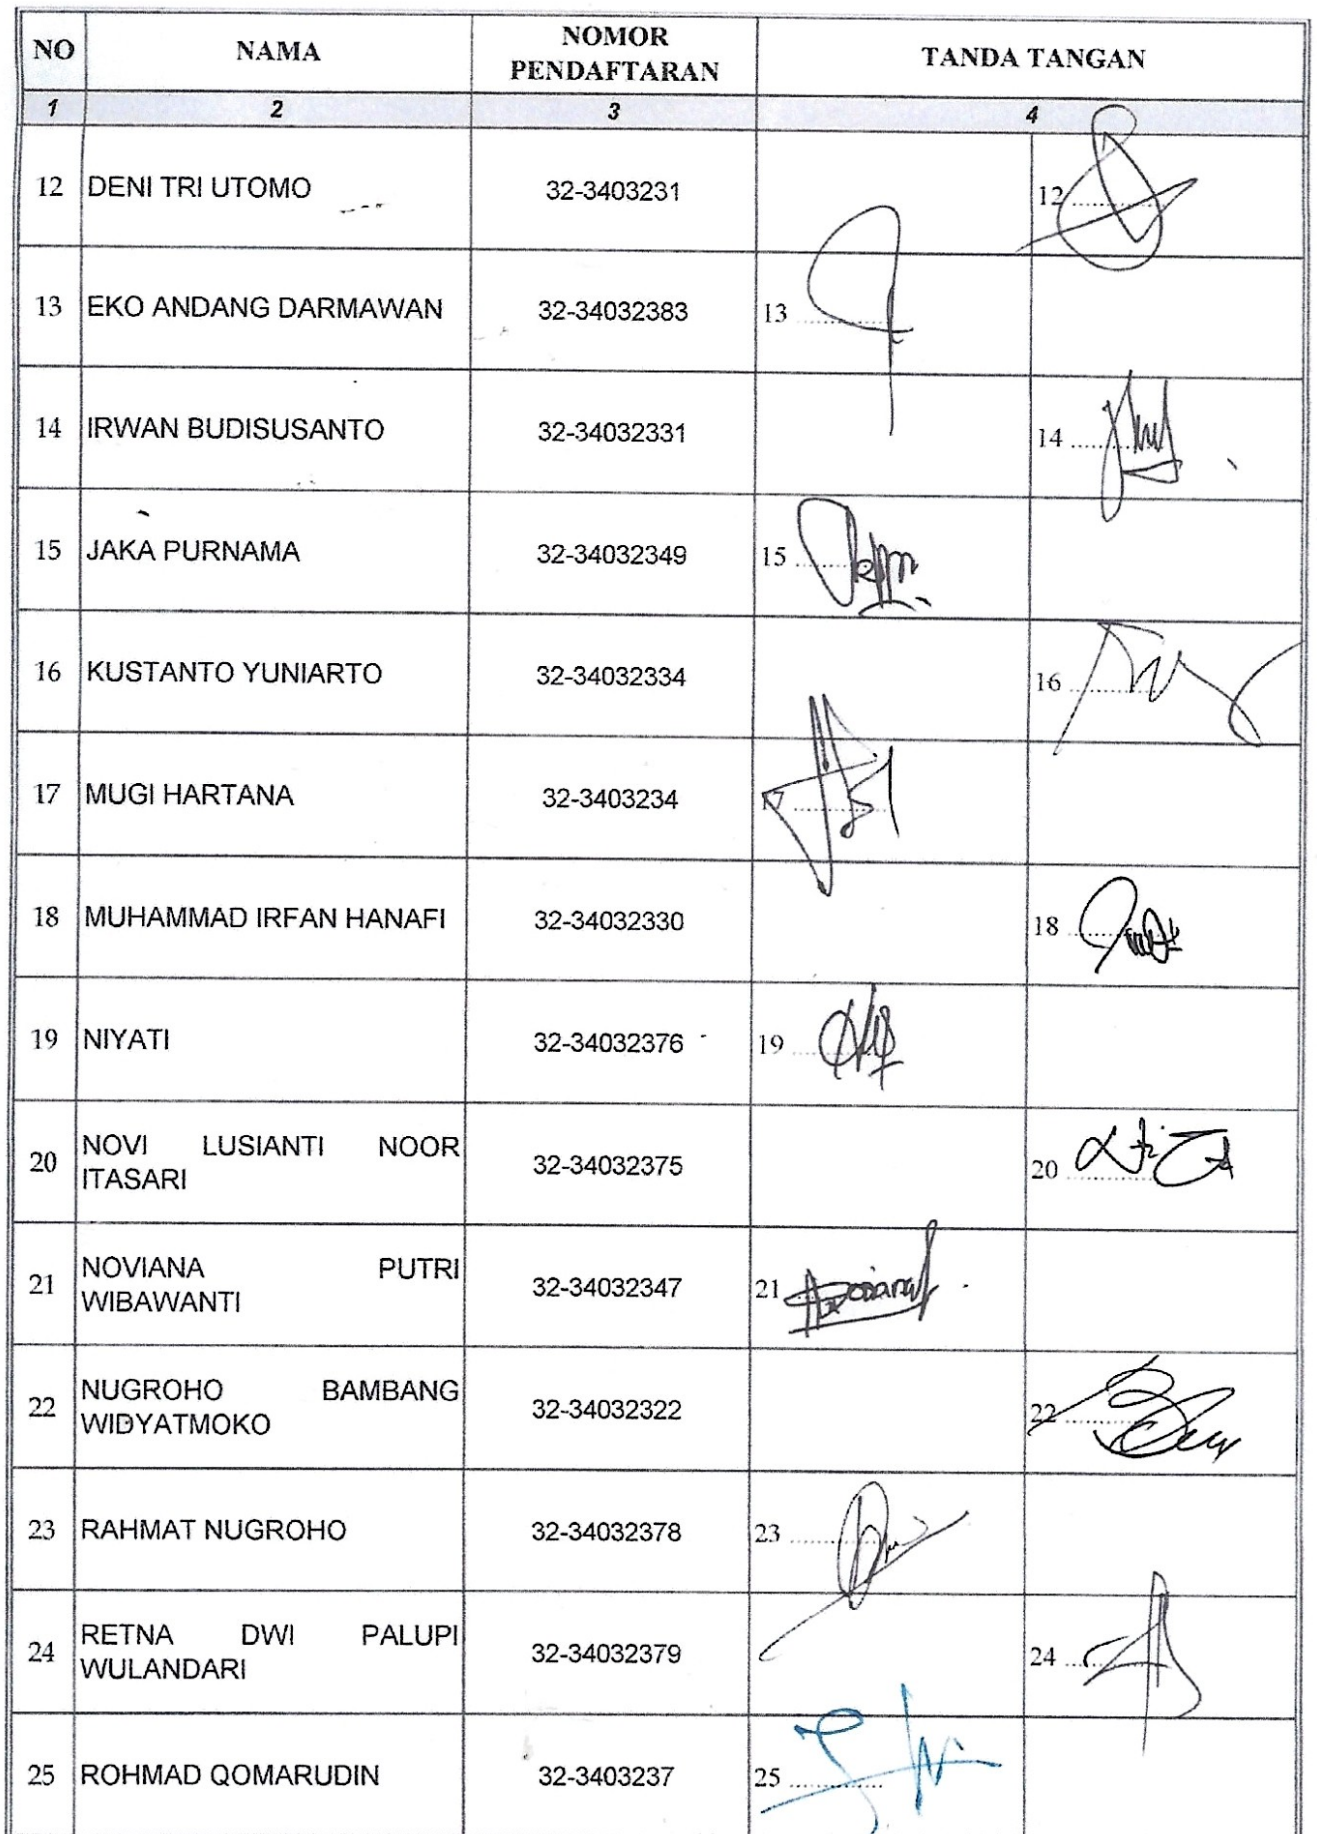 NO NAMA NOMOR PENDAFTARAN TANDA TANGAN
1 2 3 4
12 DENI TRI UTOMO 32-3403231 12
13 EKO ANDANG DARMAWAN 32-34032383 13
14 IRWAN BUDISUSANTO 32-34032331 14
15 JAKA PURNAMA 32-34032349 15
16 KUSTANTO YUNIARTO 32-34032334 16
17 MUGI HARTANA 32-3403234 17
18 MUHAMMAD IRFAN HANAFI 32-34032330 18
19 NIYATI 32-34032376 19
20 NOVI LUSIANTI NOOR ITASARI 32-34032375 20
21 NOVIANA PUTRI WIBAWANTI 32-34032347 21
22 NUGROHO BAMBANG WIDYATMOKO 32-34032322 22
23 RAHMAT NUGROHO 32-34032378 23
24 RETNA DWI PALUPI WULANDARI 32-34032379 24
25 ROHMAD QOMARUDIN 32-3403237 25